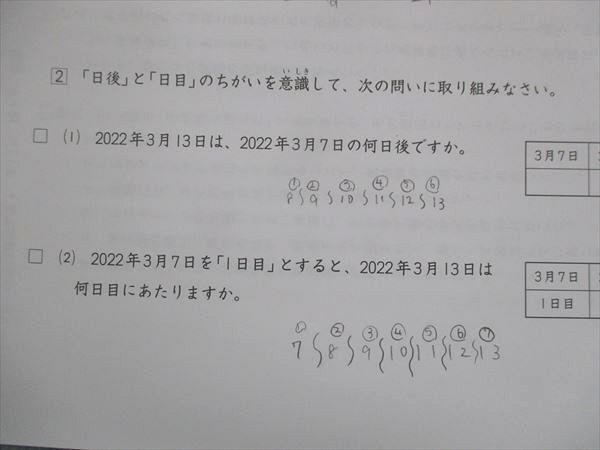 2 「日後」と「日目」のちがいを意識して、次の問いに取り組みなさい。
いしき
(1) 2022年3月13日は、2022年3月7日の何日後ですか。
3月7日
① ② ③ ④ ⑤ ⑥
8 9 10 11 12 13
(2) 2022年3月7日を「1日目」とすると、2022年3月13日は
何日目にあたりますか。
3月7日
1日目
① ② ③ ④ ⑤ ⑥ ⑦
7 8 9 10 11 12 13